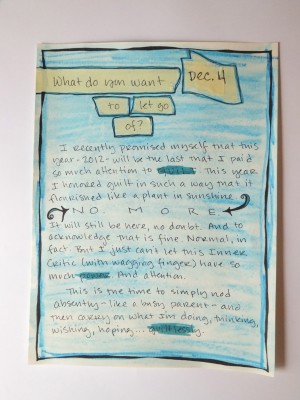 What do you want
Dec. 4
to let go
of?
I recently promised myself that this
year - 2012 - will be the last that I paid
so much attention to guilt. This year
I honored guilt in such a way that it
flourished like a plant in sunshine.
NO MORE
It will still be here, no doubt. And to
acknowledge that is fine. Normal, in
fact. But I just can't let this Inner
Critic (with wagging finger) have so
much power. And attention.
This is the time to simply nod
absently - like a busy parent - and
then carry on what I'm doing, thinking,
wishing, hoping... guiltlessly.